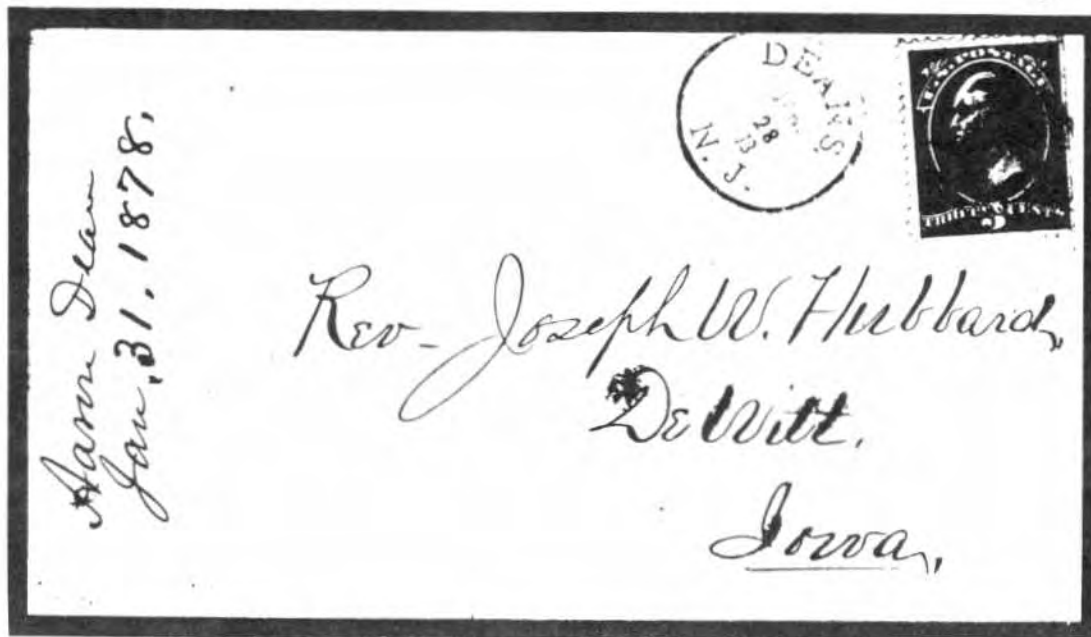 Aaron Dean
Jan. 31. 1878.
DEANS
28
N. J.
U.S. POSTAGE
THREE CENTS
3
Rev. Joseph W. Hubbard,
DeWitt.
Iowa,